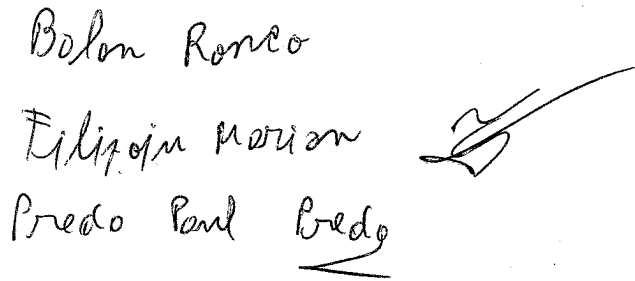 Bolan Ronco
Filipoiu Marian
Predo Paul Predo